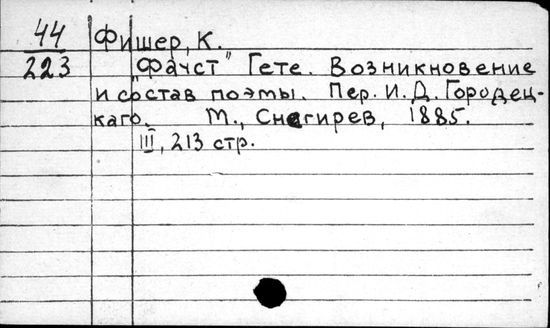 44 Фишер, К.
223 "Фауст" Гете. Возникновение
и состав поэмы. Пер. И. Д. Городец-
каго. М., Снегирев, 1885.
III, 213 стр.